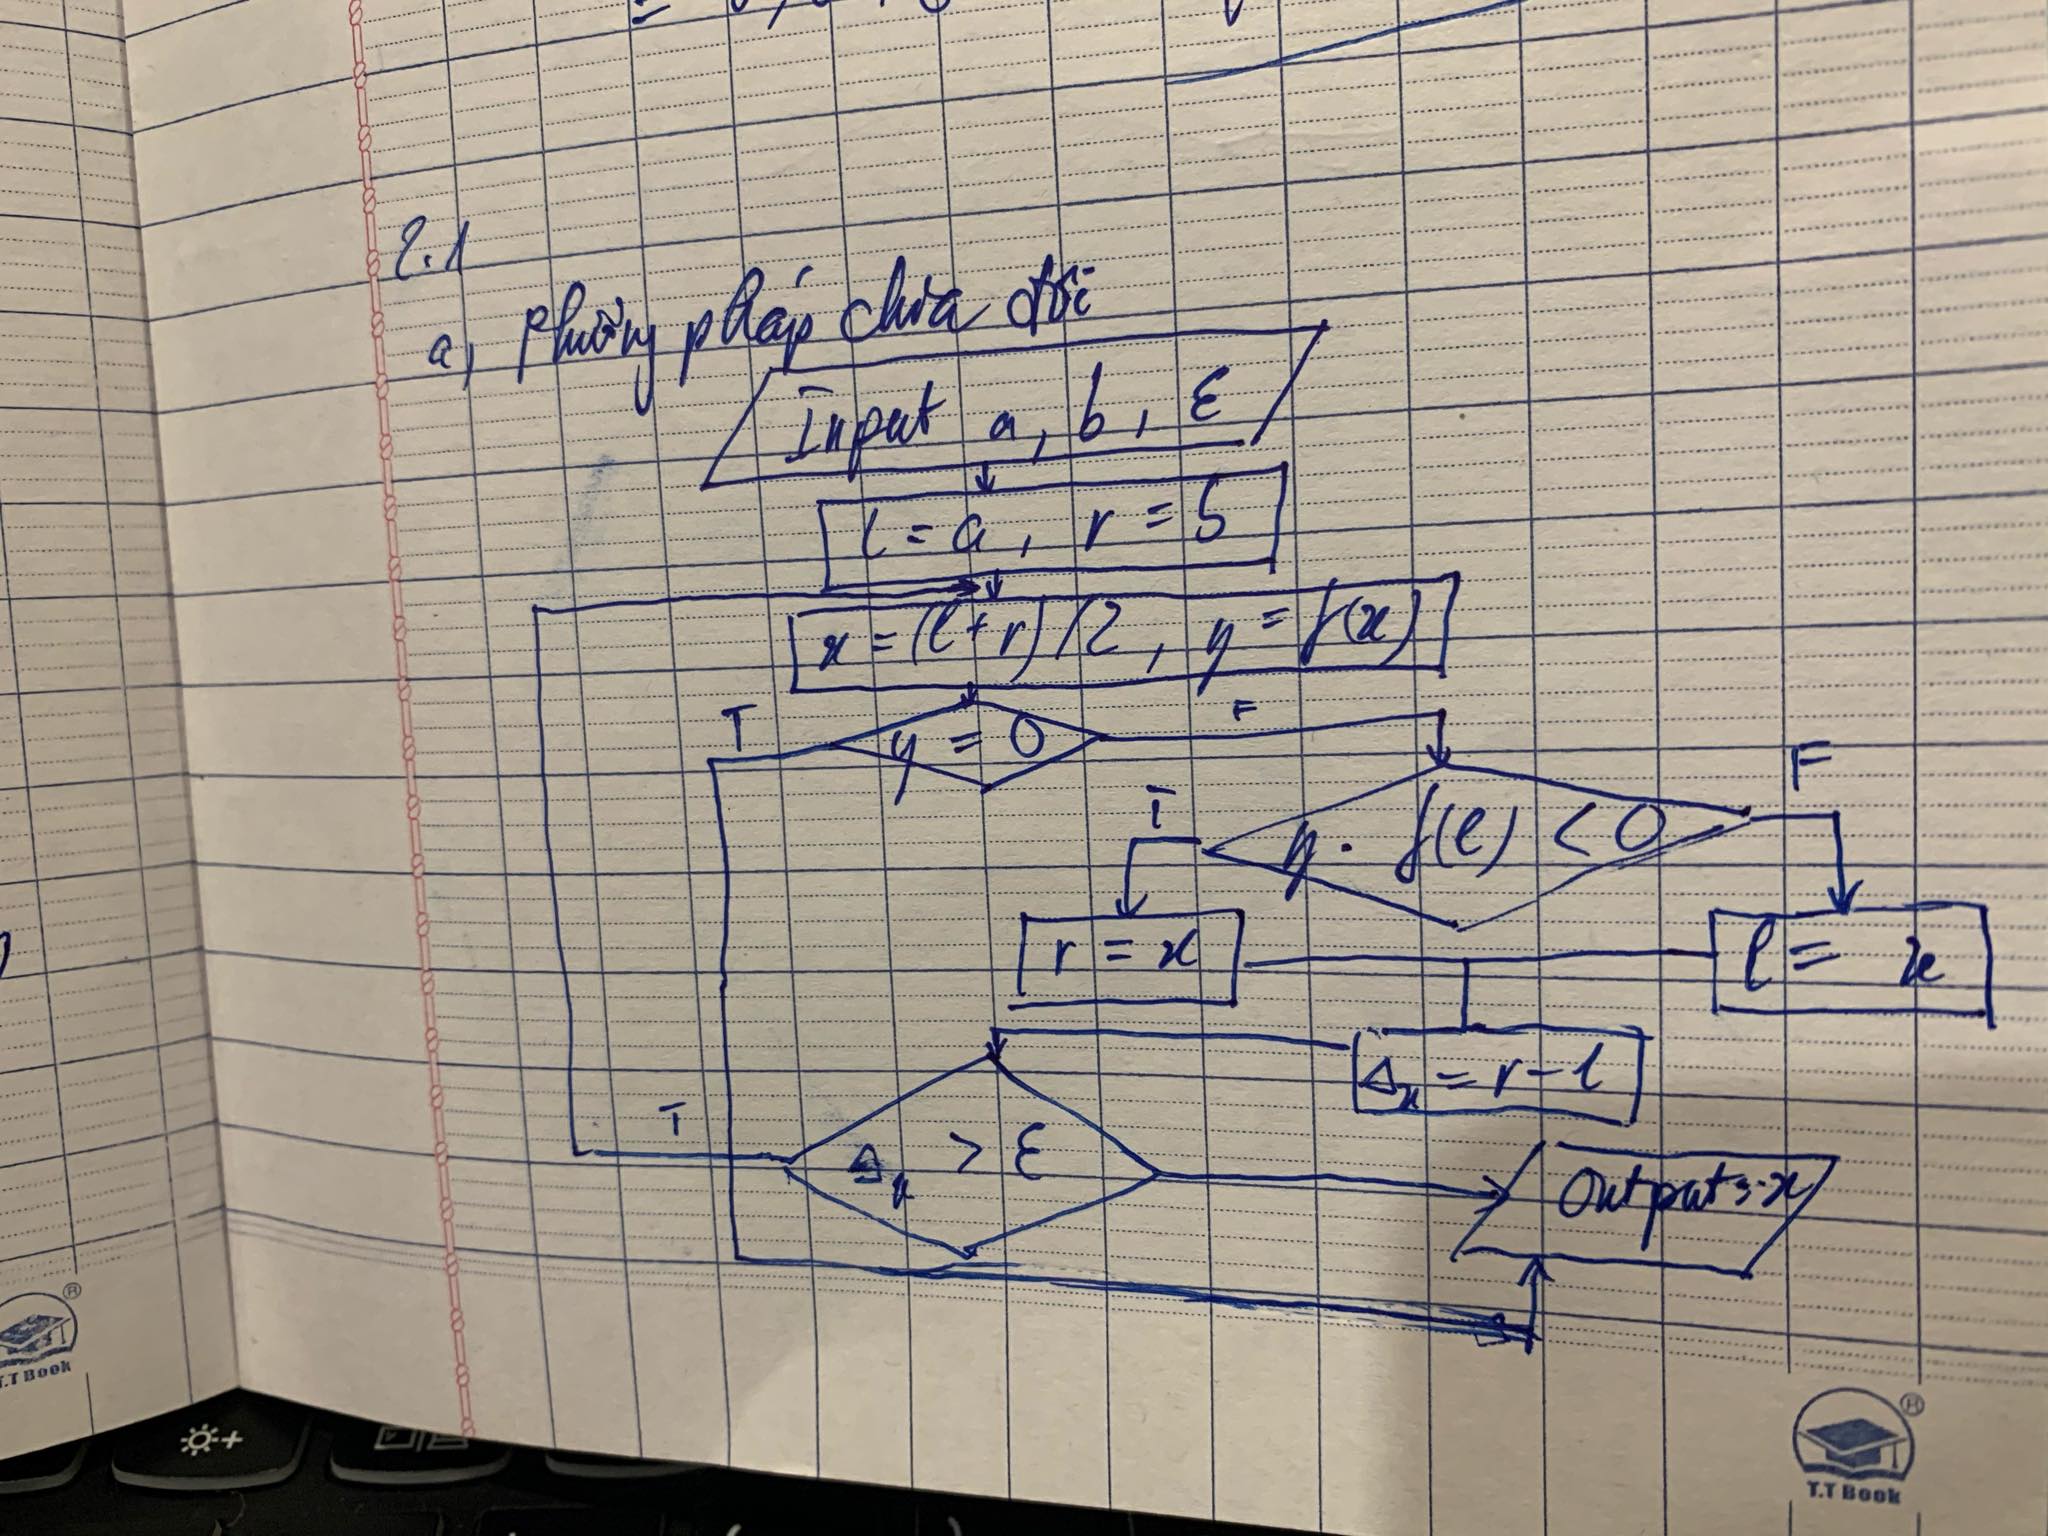 2.1
a, Phương pháp chia đôi
Input a, b, ε
l = a, r = b
x = (l + r) / 2, y = f(x)
T
y = 0
F
T
y . f(l) < 0
F
r = x
l = x
Δx = r - l
T
Δx > ε
Output: x
® 
T.T Book
®
T.T Book